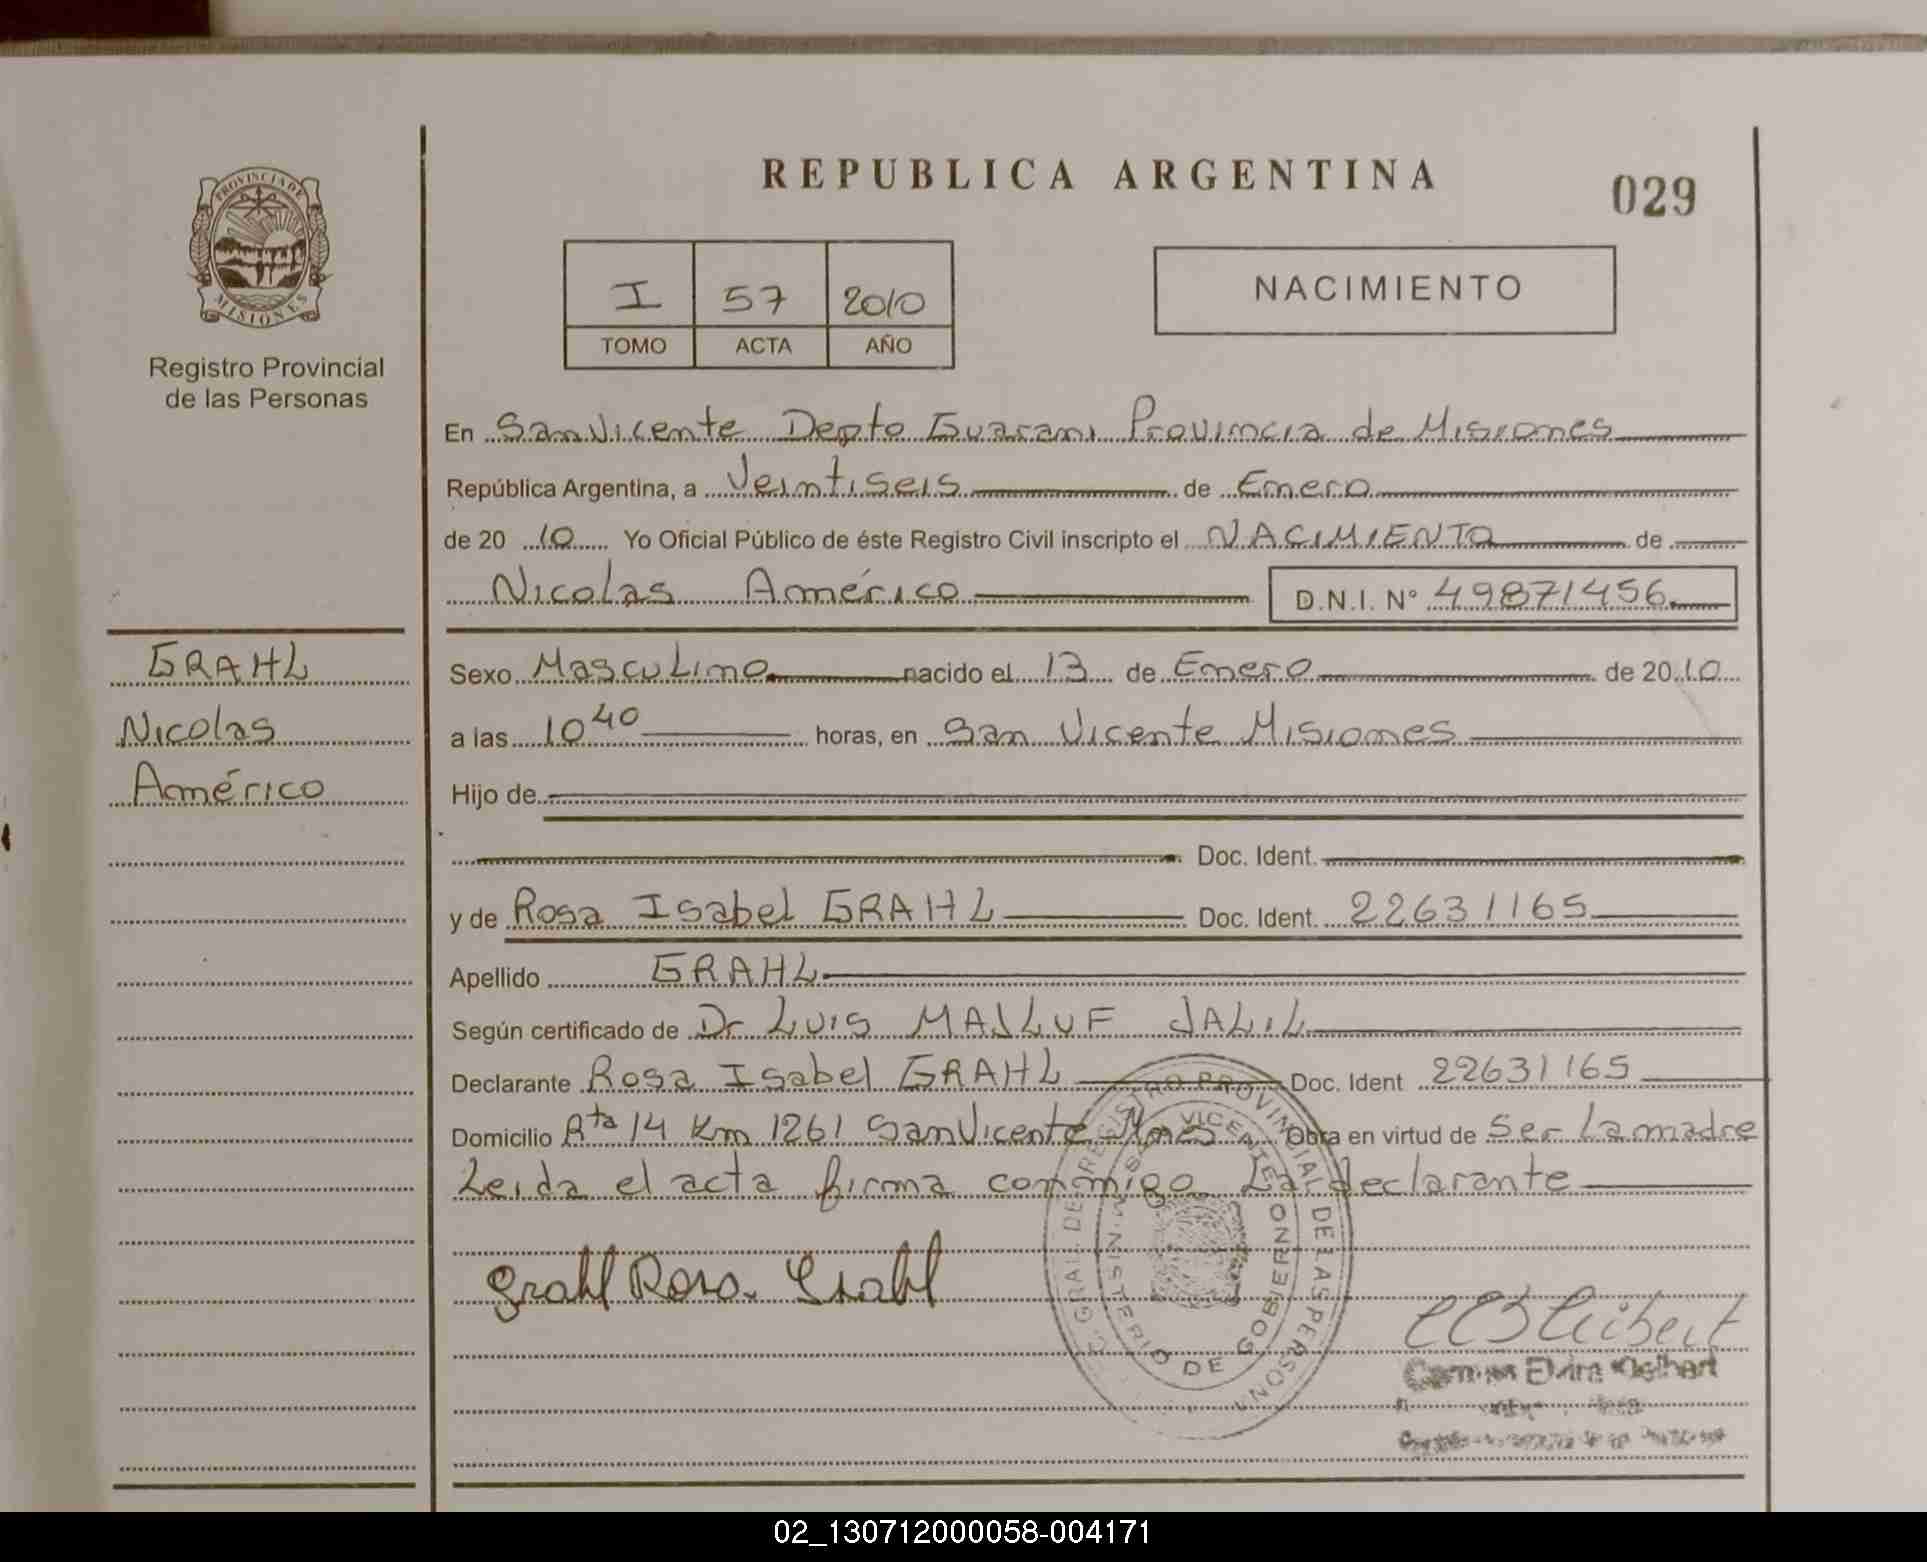 PROVINCIA DE
MISIONES
Registro Provincial
de las Personas
GRAHL
Nicolas
Américo
REPUBLICA ARGENTINA
029
I 57 2010
TOMO ACTA AÑO
NACIMIENTO
En San Vicente Depto Guarani Provincia de Misiones
República Argentina, a Veintiseis de Enero
de 20 10 Yo Oficial Público de éste Registro Civil inscripto el NACIMIENTO de
Nicolas Américo D.N.I. N° 49871456
Sexo Masculino nacido el 13 de Enero de 20 10
a las 10 40 horas, en San Vicente Misiones
Hijo de
Doc. Ident.
y de Rosa Isabel GRAHL Doc. Ident. 22631165
Apellido GRAHL
Según certificado de Dr LUIS MAJLUF JALIL
Declarante Rosa Isabel GRAHL Doc. Ident 22631165
Domicilio Rta 14 Km 1261 San Vicente Mnes Obra en virtud de Ser La madre
Leida el acta firma conmigo La declarante
Grahl Rosa. Grahl
GRAL. DE REGISTRO PROVINCIAL DE LAS PERSONA
MINISTERIO DE GOBIERNO
VICENTE
Elvira
02_130712000058-004171